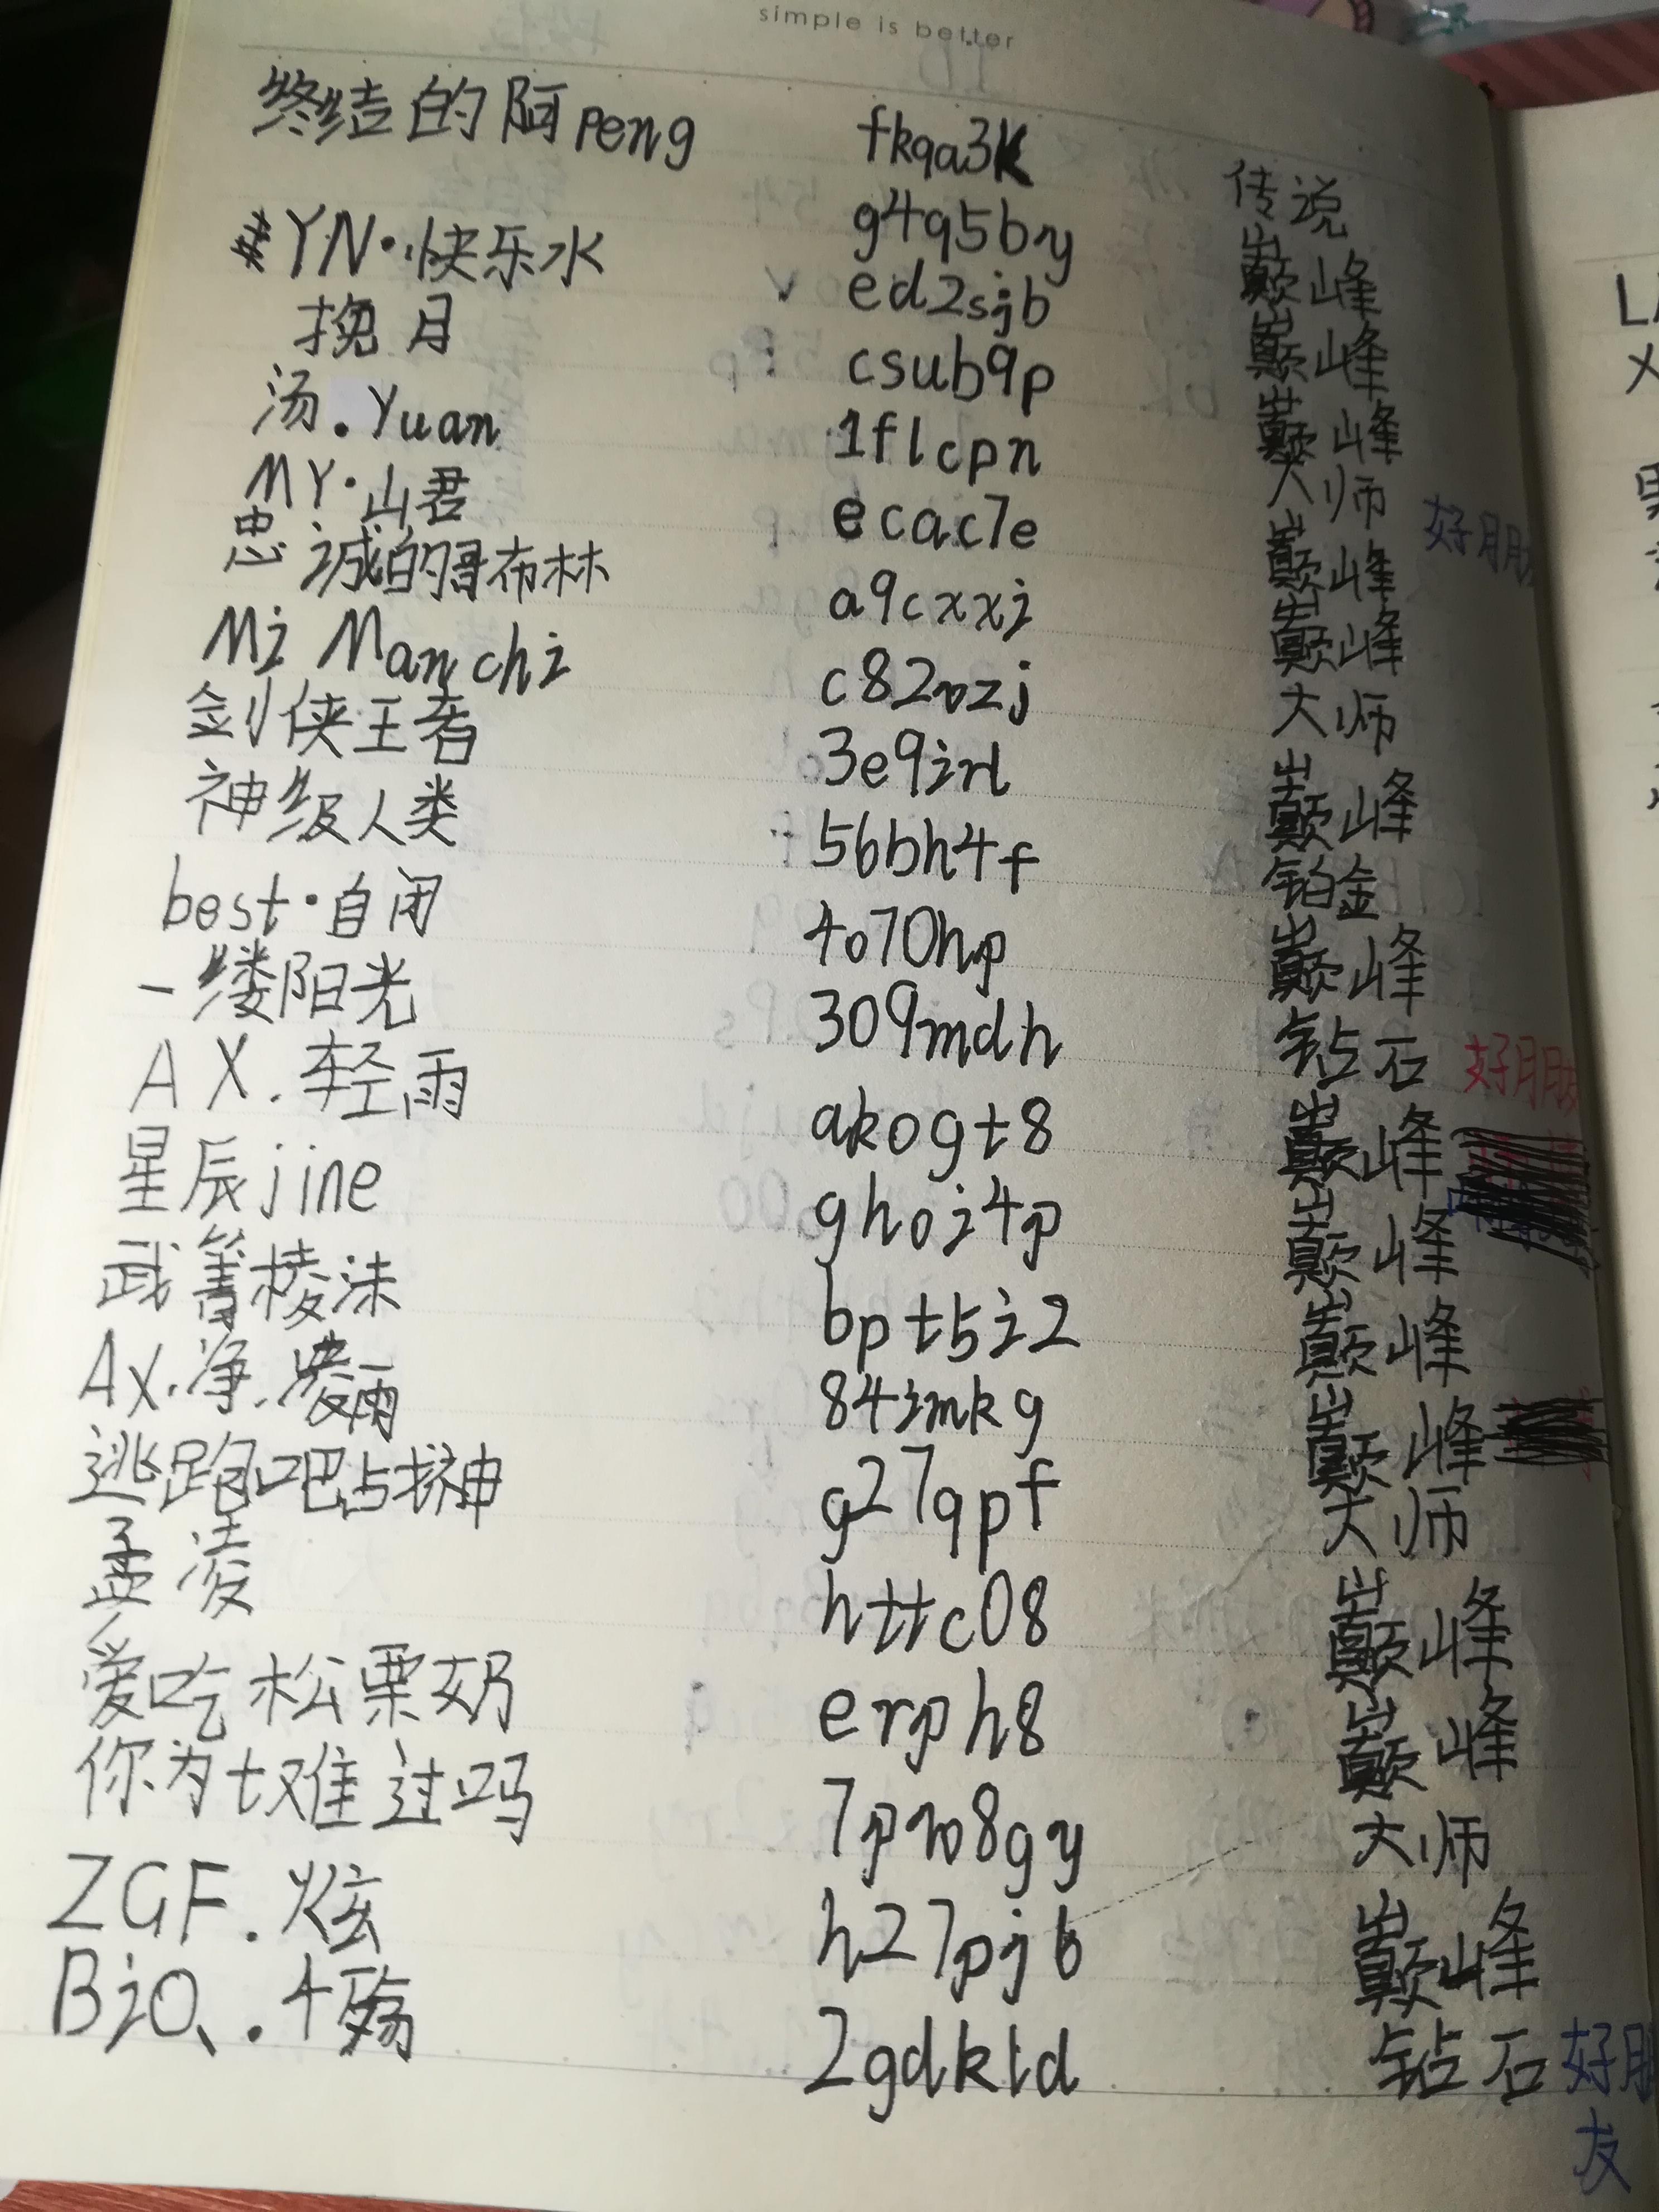 simple is better
终结的阿peng fkqa3k 传说
YN·快乐水 g4q5by 巅峰
挽月 ed2sjb 巅峰
汤.Yuan csub9p 巅峰
MY·山君 1flcpn 大师
忠诚的哥布林 ecac7e 巅峰 好朋
Mi Manchi a9cxxj 巅峰
剑侠王者 c82vzj 大师
神级人类 3e9irl 巅峰
best·自闭 56bh4f 铂金
一缕阳光 4o70hp 巅峰
AX.轻雨 309mdh 钻石 好朋
星辰jine akogt8 巅峰
武箐棱沫 ghoi4p 巅峰
AX.净.凌雨 bpt5i2 巅峰
逃跑吧占神 84imkg 巅峰
孟凌 g27qpf 大师
爱吃松栗奶 httc08 巅峰
你为難过吗 erph8 巅峰
ZGF.炫 8gy 大师
h27pjb 巅峰
2gdktd 钻石 好朋
友